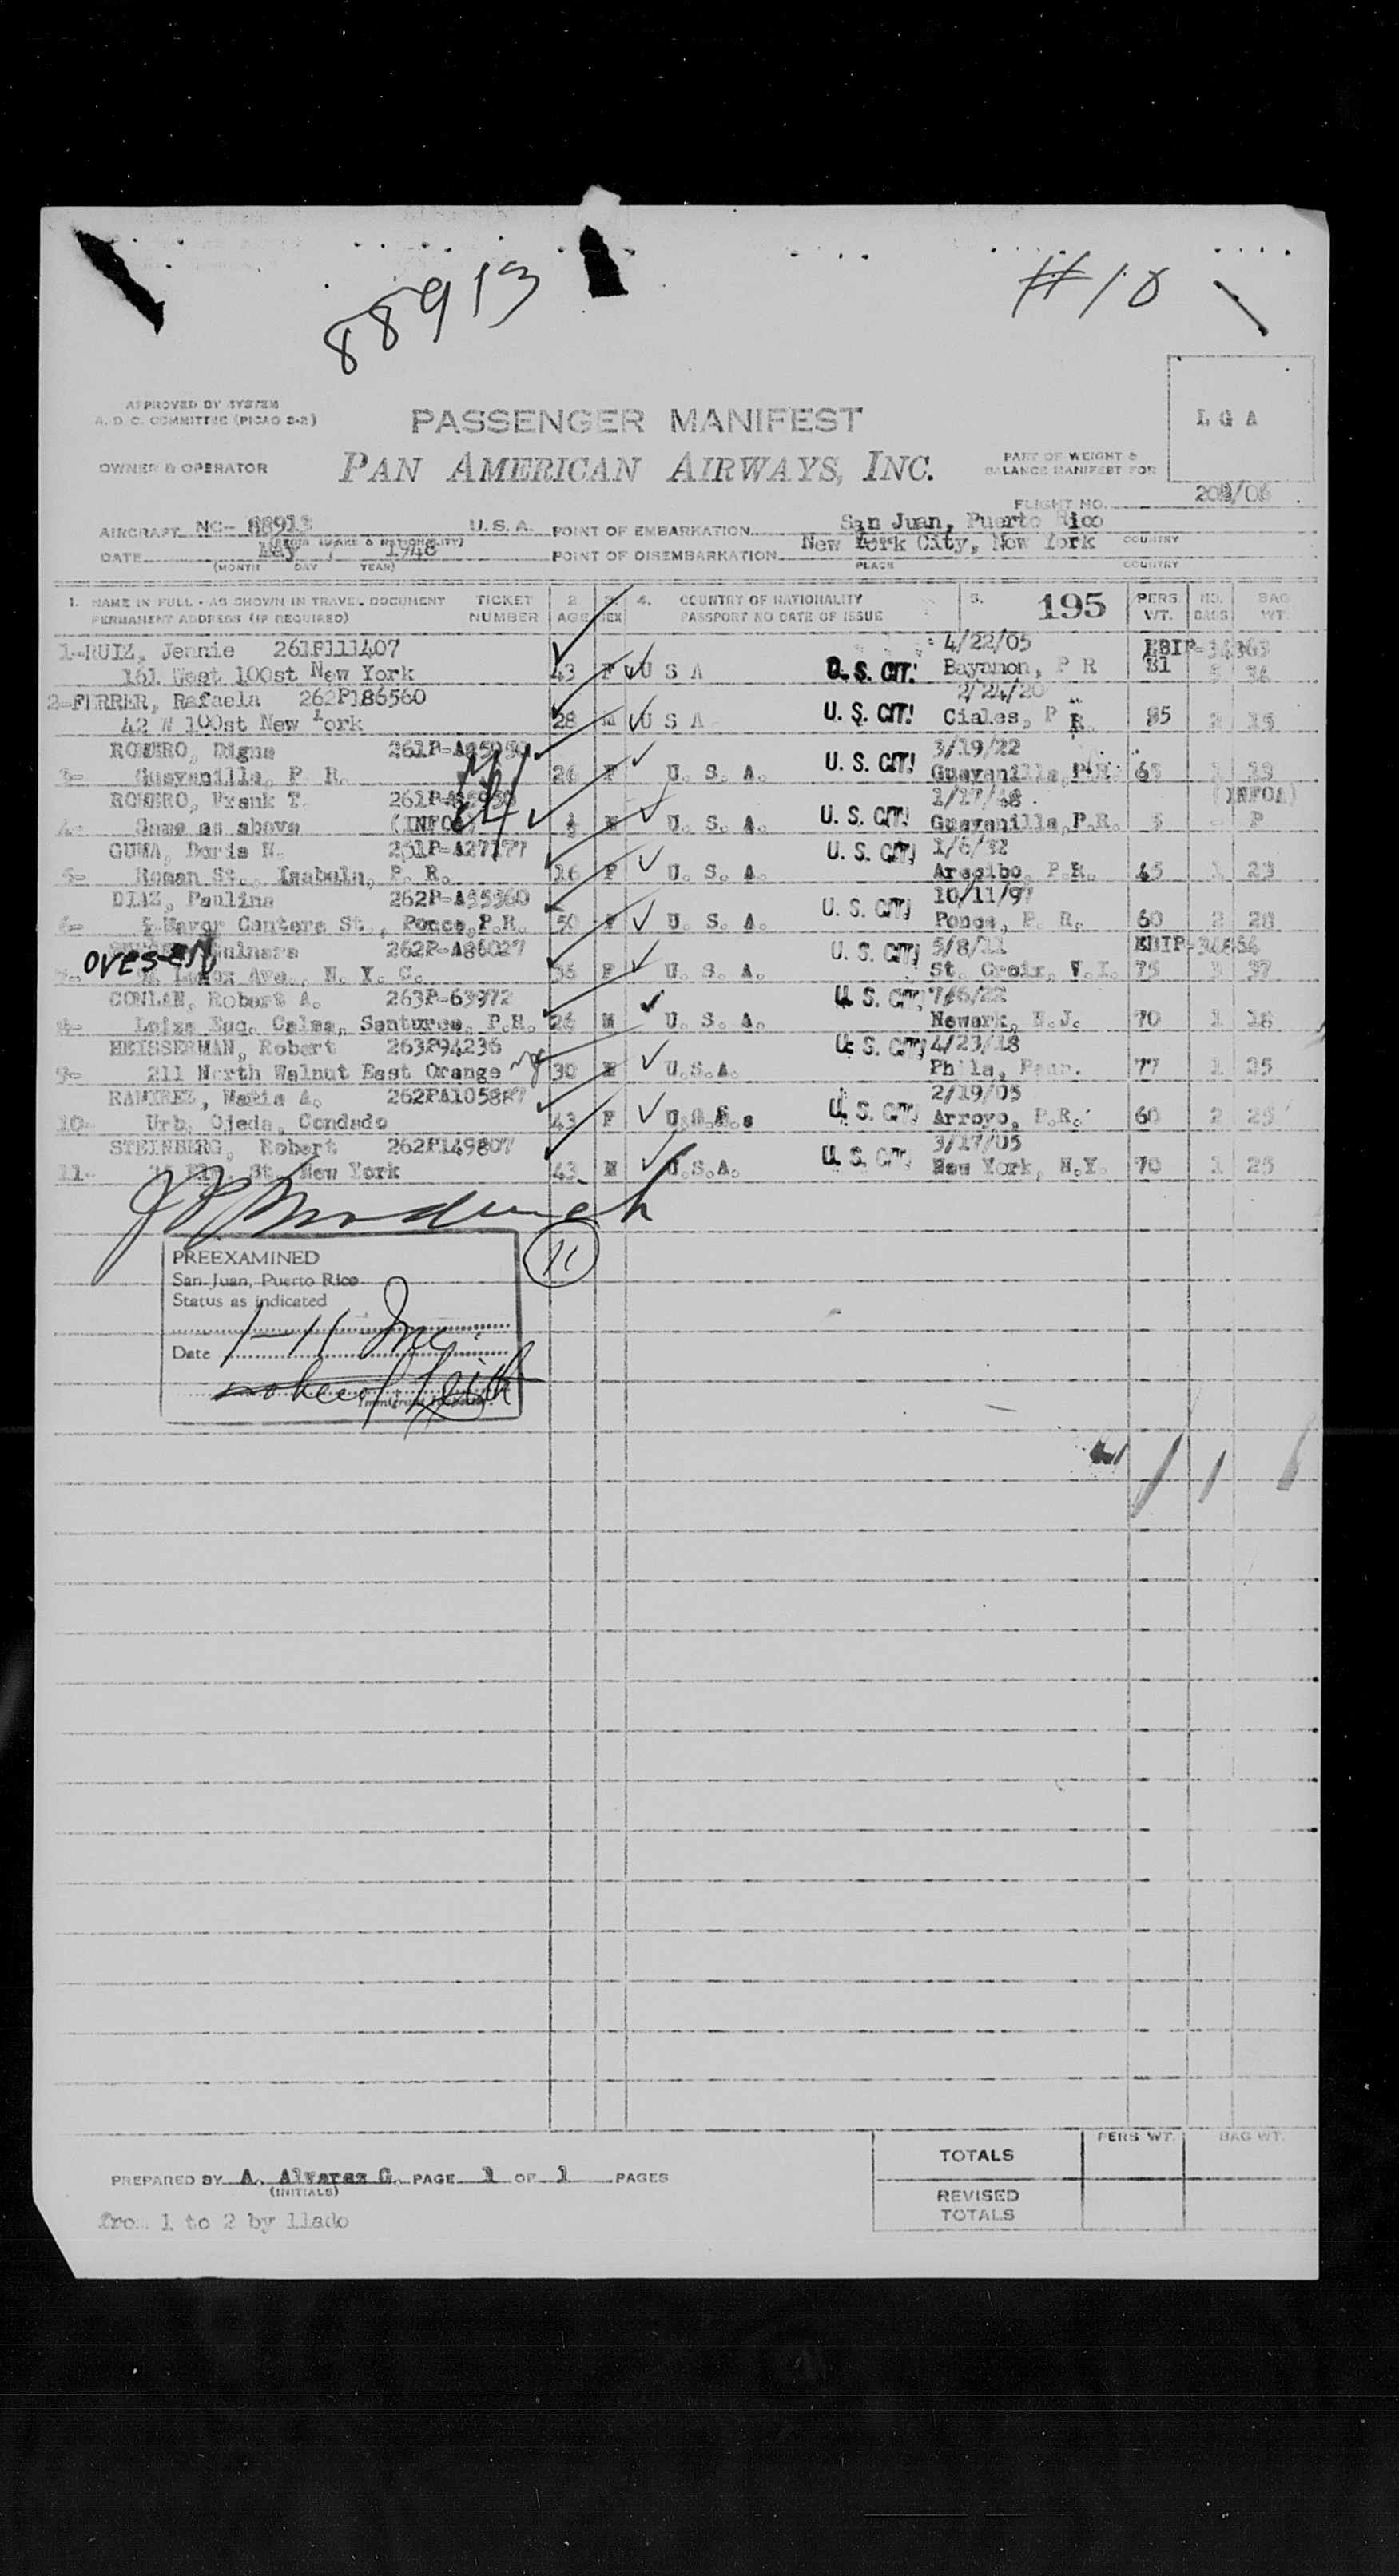 88913
#10
APPROVED BY SYSTEM
A. D. C. COMMITTEE (PICAO S-2)
PASSENGER MANIFEST
L G A
OWNER & OPERATOR
PAN AMERICAN AIRWAYS, INC.
PART OF WEIGHT &
BALANCE MANIFEST FOR
FLIGHT NO.
AIRCRAFT NC- 88913 U.S.A. POINT OF EMBARKATION San Juan, Puerto Rico
DATE May 1948 POINT OF DISEMBARKATION New York City, New York COUNTRY
(MONTH DAY YEAR) PLACE COUNTRY
1. NAME IN FULL - AS SHOWN IN TRAVEL DOCUMENT TICKET 2 3. 4. COUNTRY OF NATIONALITY 5. 195 PERS. NO. BAG
PERMANENT ADDRESS (IF REQUIRED) NUMBER AGE SEX PASSPORT NO DATE OF ISSUE WT. BAGS WT.
1-RUIZ, Jennie 261P111407 4/22/05
161 West 100st New York 43 F U S A U. S. CIT. Bayamon, P R 81 34
2-FERRER, Rafaela 262P186560 2/24/20
42 W 100st New York 28 M U S A U. S. CIT. Ciales, P R. 15
ROMERO, Digna 3/19/22
3- Guayanilla, P. R. 26 F U. S. A. U. S. CIT. Guayanilla, P.R. 1
ROMERO, Frank T. 1/17/48 (INFOA)
4- Same as above (INFOA) M U. S. A. U. S. CIT. Guayanilla, P.R. - P
GUMA, Doris N. 261P-A27177 1/6/32
5- Roman St., Isabela, P. R. 16 F U. S. A. U. S. CIT. Arecibo, P.R. 45 1 23
DIAZ, Paulina 262P-A35560 10/11/97
6- Mayor Cantera St., Ponce, P.R. 50 F U. S. A. U. S. CIT. Ponce, P. R. 60 2 28
OVESEN 262P-A86027 5/8/11
7- Lenox Ave., N. Y. C. 36 F U. S. A. U. S. CIT. St. Croix, V.I. 75 37
CONLAN, Robert A. 263P-63972
8- Loiza Esq. Calma, Santurce, P.R. 26 M U. S. A. U. S. CIT. Newark, N.J. 70 1 18
HEISSERMAN, Robert 263P94236 4/23/18
9- 211 North Walnut East Orange 30 M U.S.A. U. S. CIT. Phila, Penn. 77 1 25
RAMIREZ, Maria A. 262PA105887 2/19/05
10- Urb. Ojeda, Condado 43 F U. S. CIT. Arroyo, P.R. 60 2 25
STEINBERG, Robert 262P149807 3/17/05
11- St. New York 43 M U.S.A. U. S. CIT. New York, N.Y. 70 1 25
11
PREEXAMINED
San Juan, Puerto Rico
Status as indicated
1-11 Inc
Date
PERS WT. BAG WT.
TOTALS
PREPARED BY A. Alvarez G. PAGE 1 OF 1 PAGES
(INITIALS)
REVISED
TOTALS
from 1 to 2 by llado